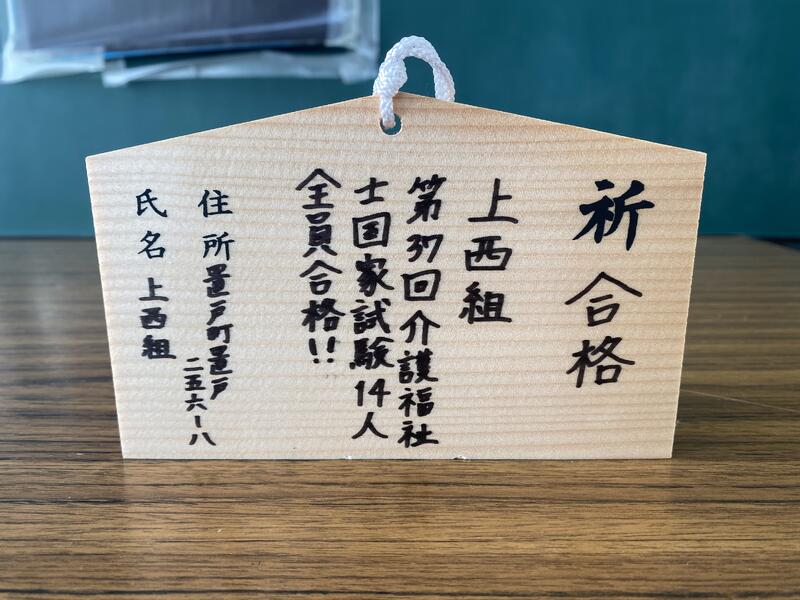 祈 合格
上西組
第37回介護福祉
士国家試験14人
全員合格!!
住所 置戸町置戸
二五六-八
氏名 上西組